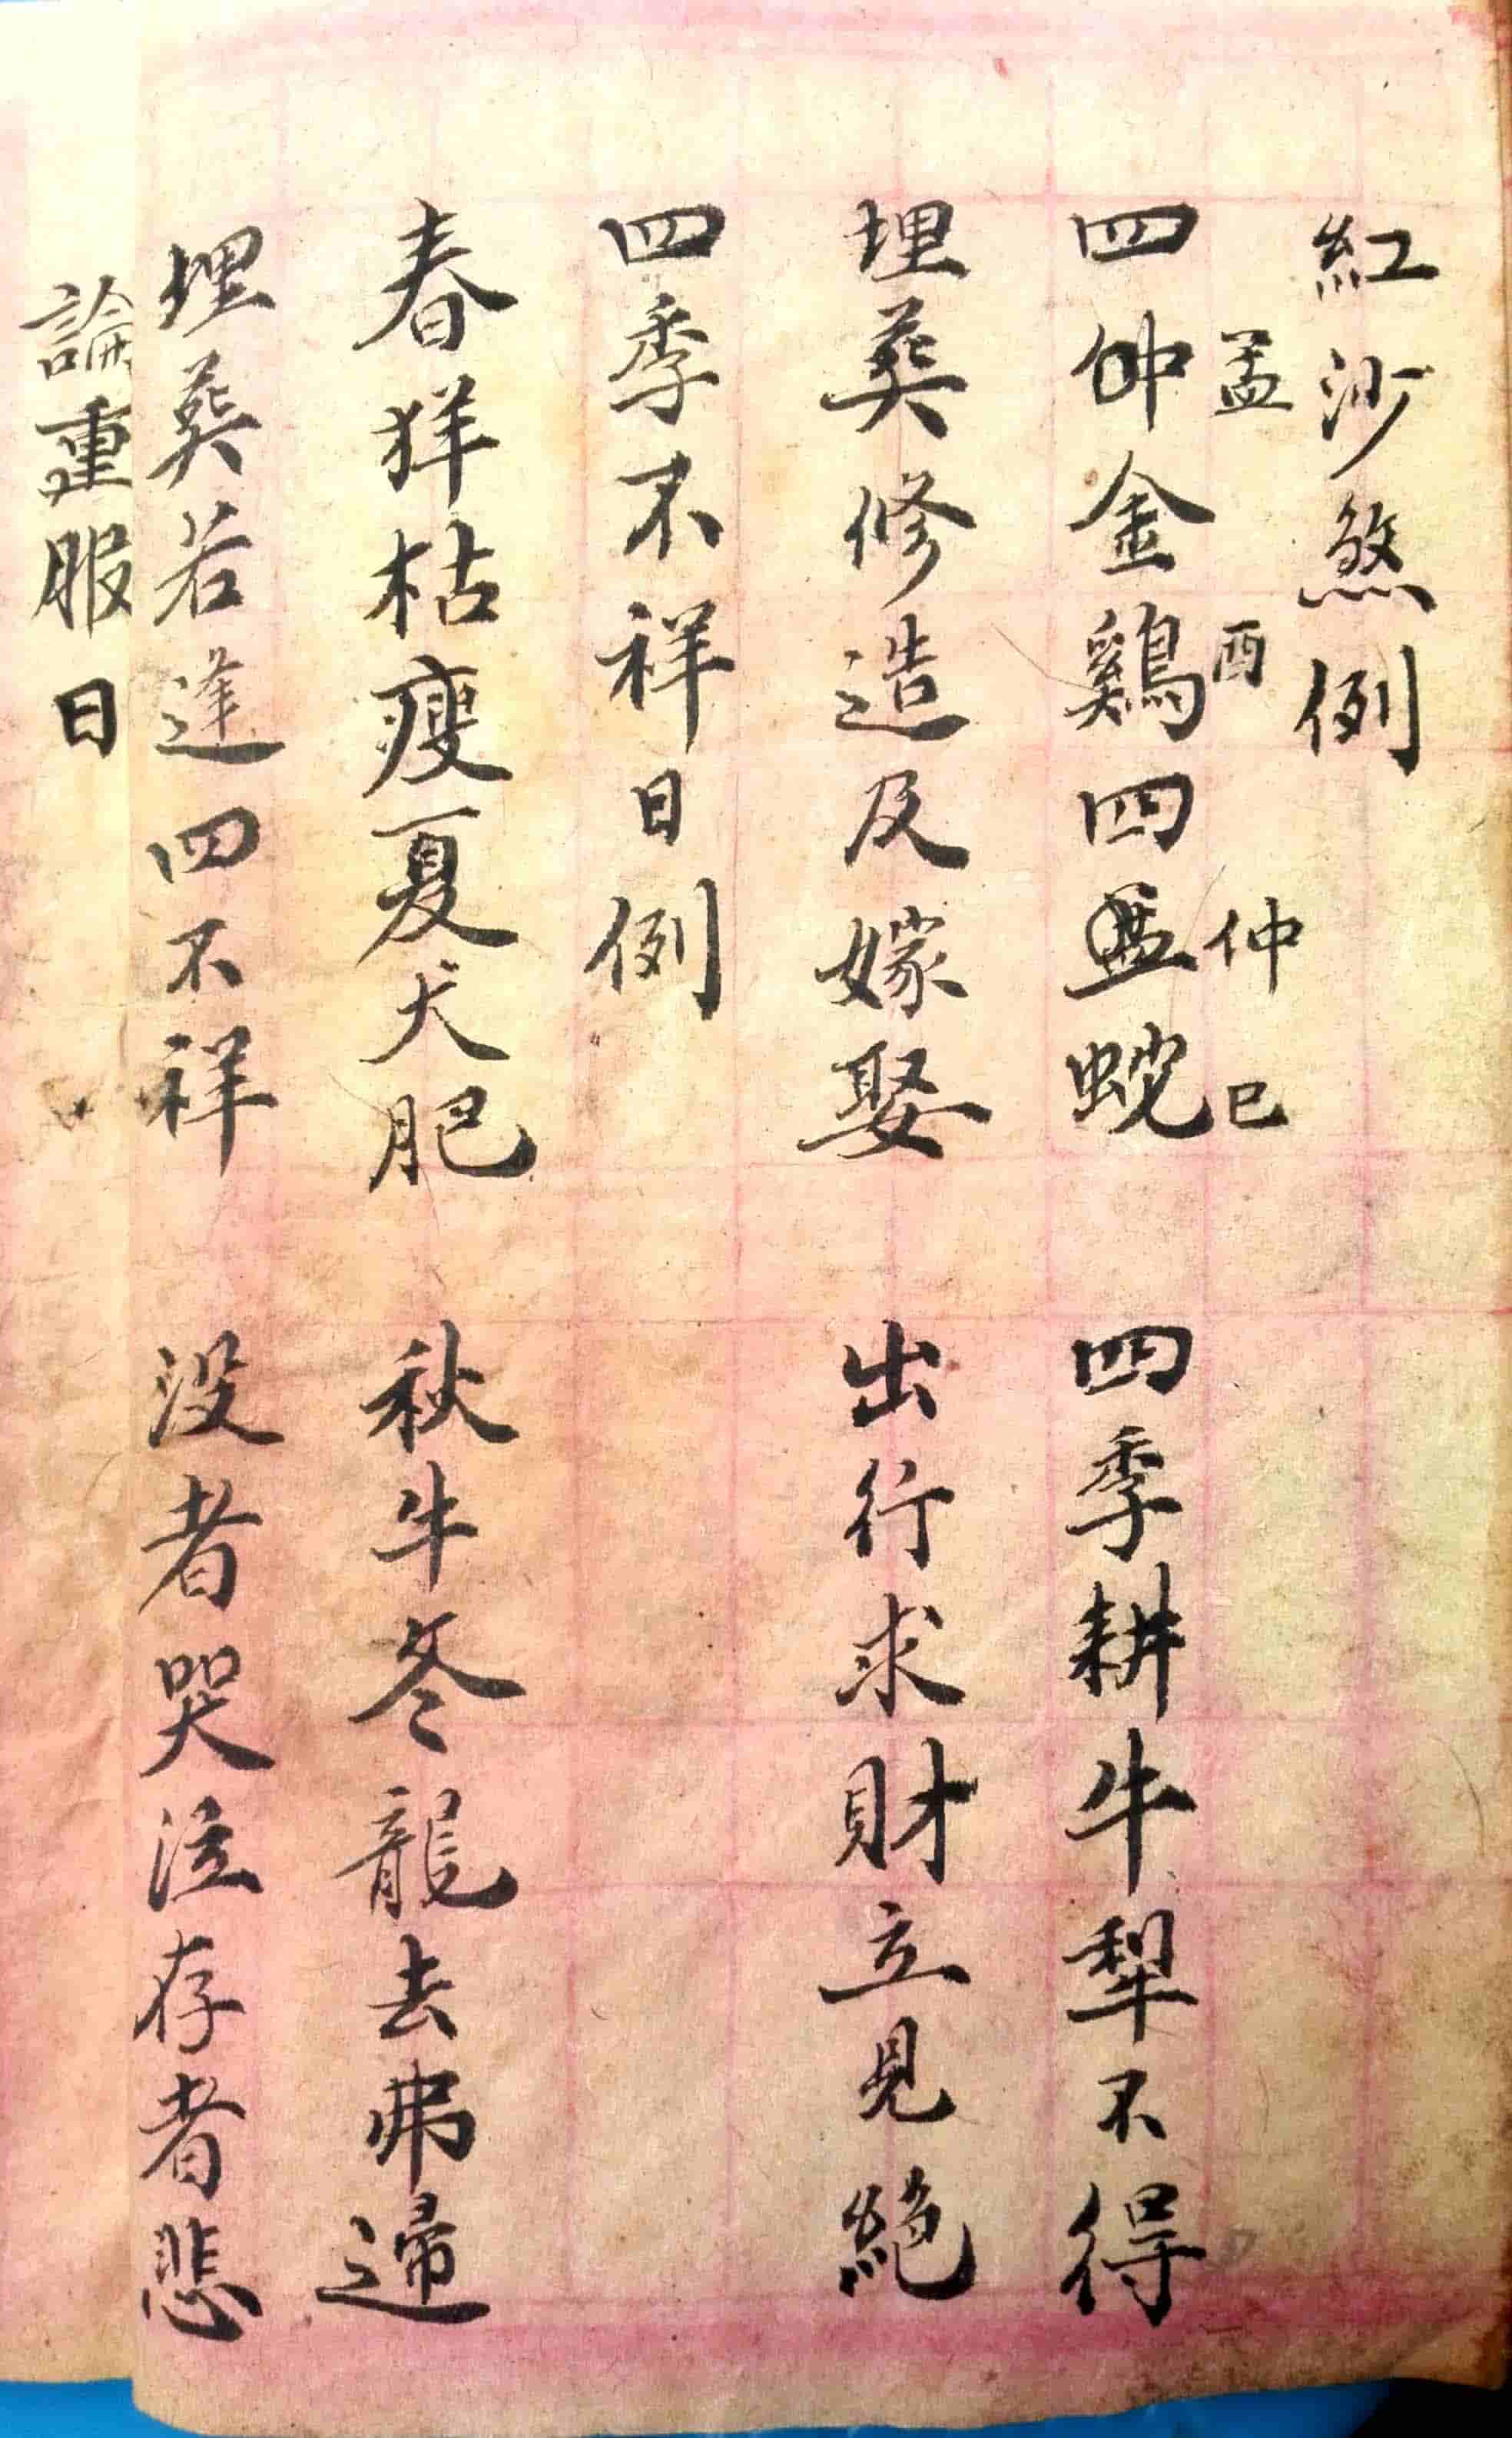 紅沙煞例
孟 酉 仲 巳
四仲金鷄四孟蛇 四季耕牛犁不得
埋葬修造及嫁娶 出行求財立見絕
四季不祥日例
春羊枯瘦夏犬肥 秋牛冬龍去弗歸
埋葬若逢四不祥 没者哭泣存者悲
論重服日